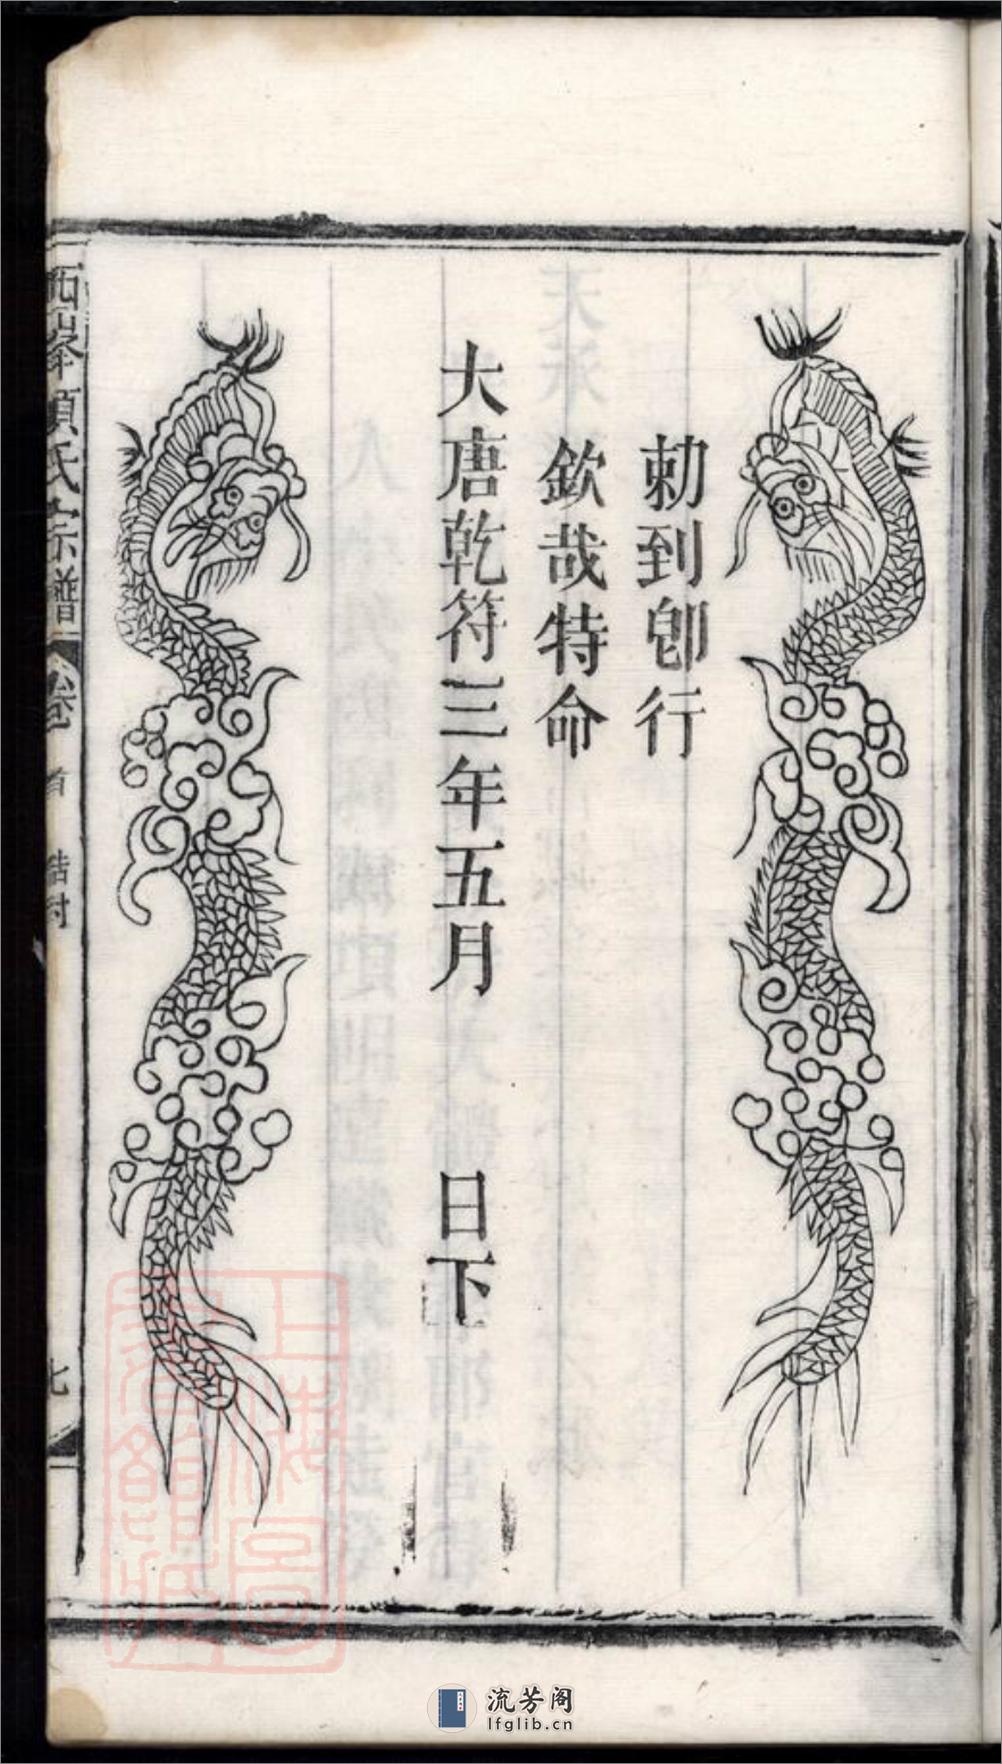 勅到卽行
欽哉特命
大唐乾符三年五月　日下
西峯項氏宗譜　卷首　誥封　七
上海圖書館藏
流芳阁
lfglib.cn